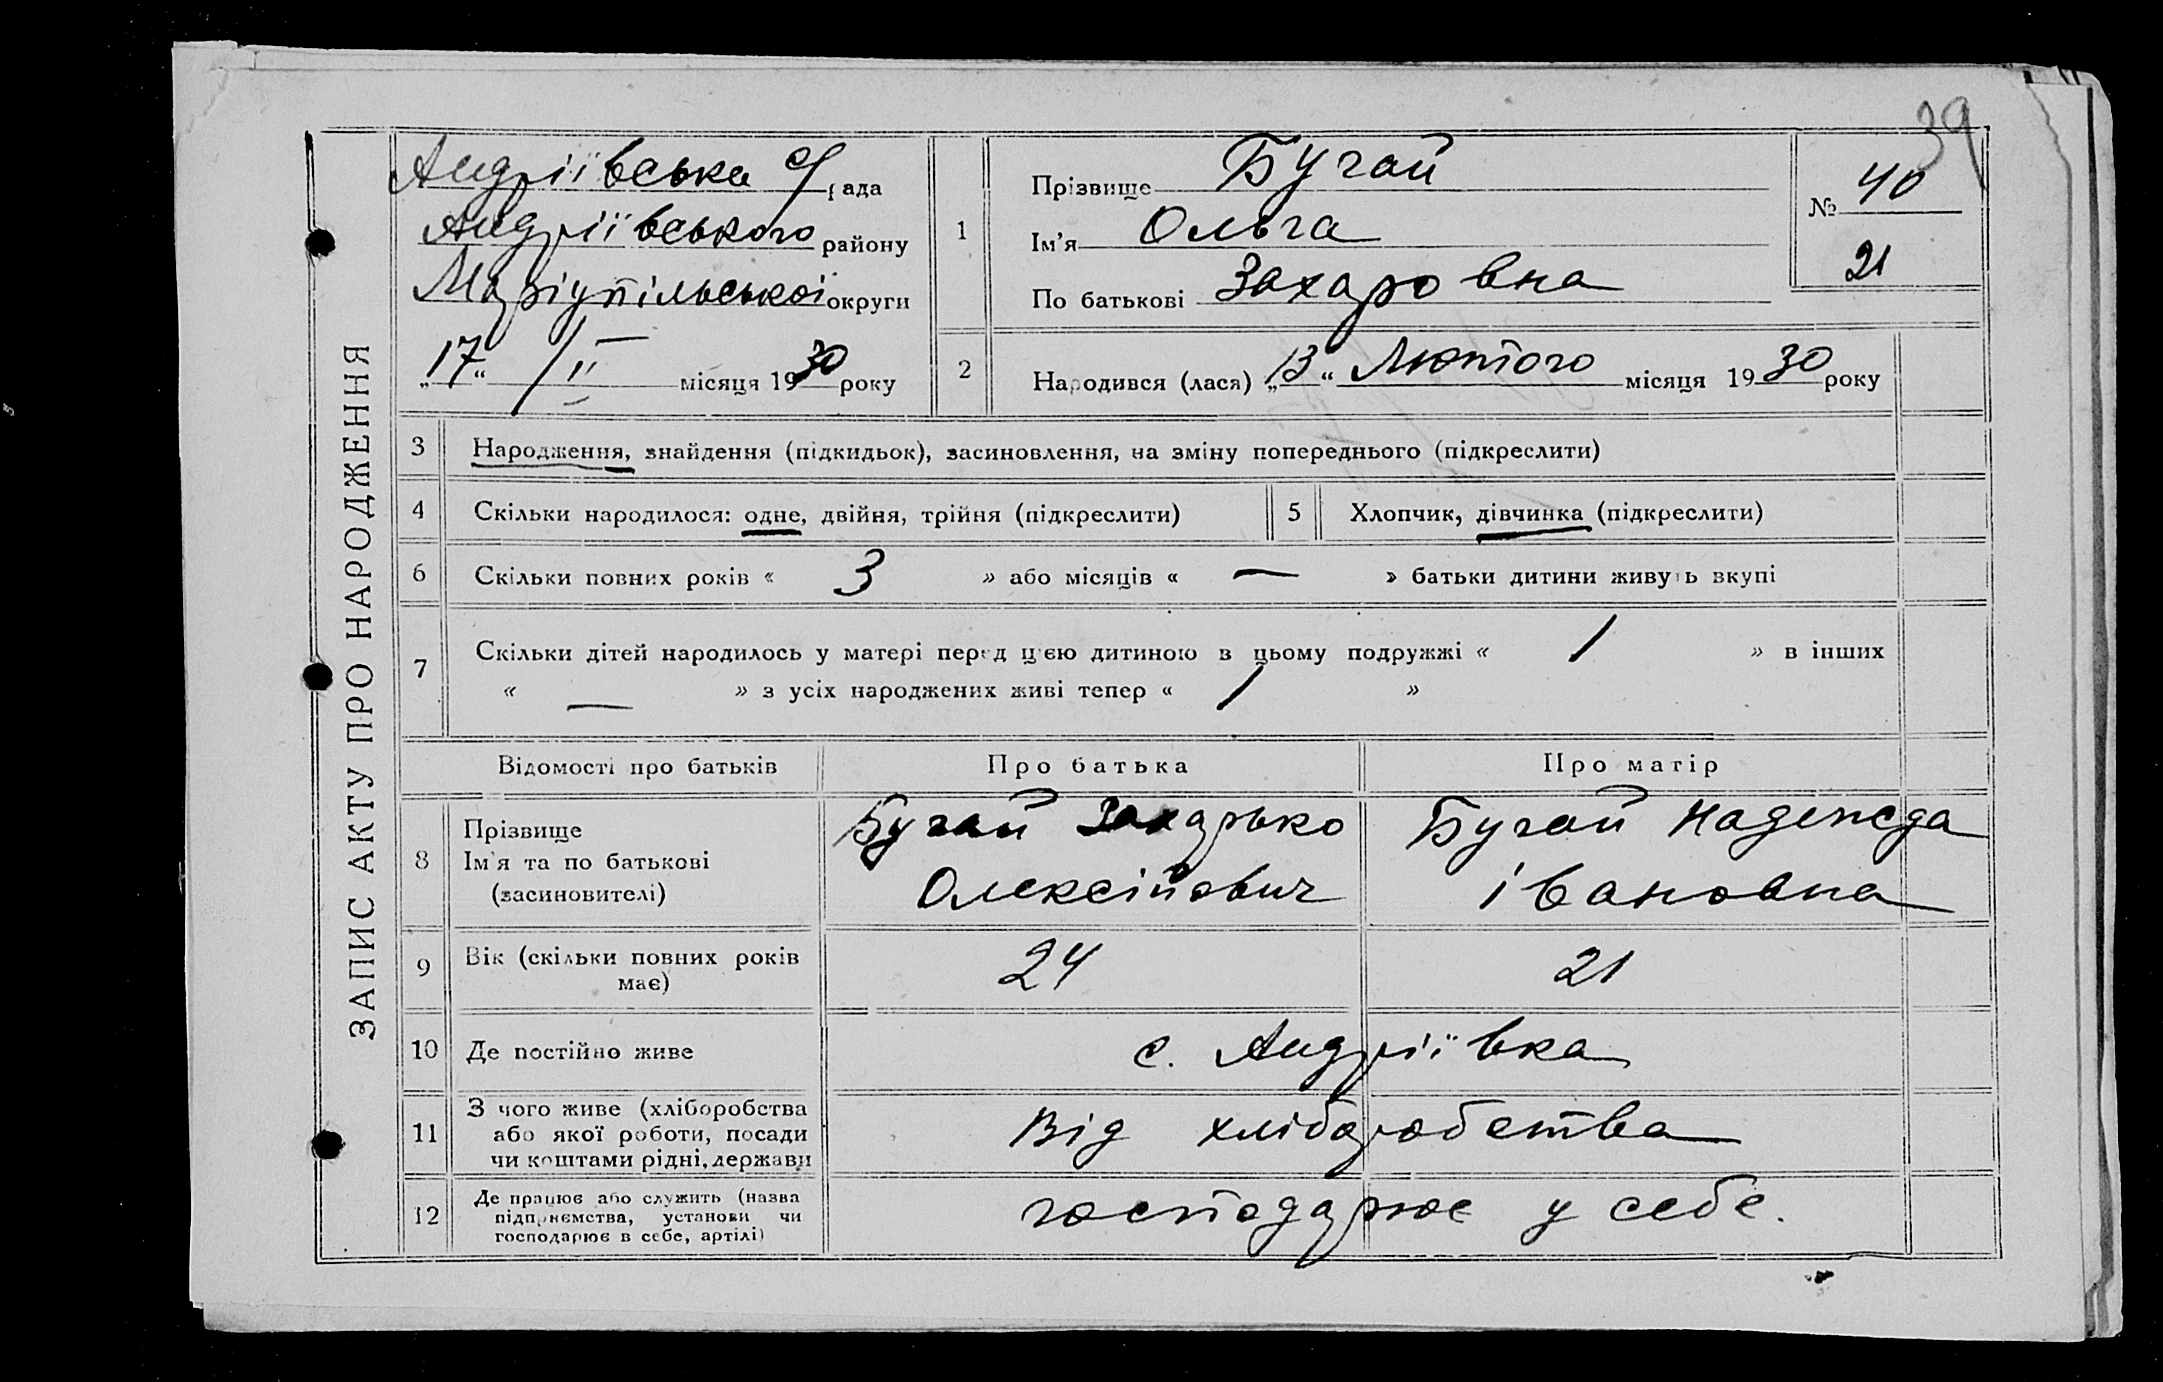 39
ЗАПИС АКТУ ПРО НАРОДЖЕННЯ
Андріївська с/рада
Андріївського району
Маріупільської округи
„17“ /II місяця 1930 року
1
Прізвище Бугай
Ім’я Ольга
По батькові Захаровна
№ 40
21
2
Народився (лася) „13“ Лютого місяця 1930 року
3 Народження, знайдення (підкидьок), засиновлення, на зміну попереднього (підкреслити)
4 Скільки народилося: одне, двійня, трійня (підкреслити) 5 Хлопчик, дівчинка (підкреслити)
6 Скільки повних років « 3 » або місяців « — » батьки дитини живуть вкупі
7 Скільки дітей народилось у матері перед цією дитиною в цьому подружжі « 1 » в інших
« — » з усіх народжених живі тепер « 1 »
Відомості про батьків Про батька Про матір
8 Прізвище
Ім’я та по батькові
(засиновителі)
Бугай Захарько
Олексійович
Бугай Надежда
Івановна
9 Вік (скільки повних років
має)
24 21
10 Де постійно живе с. Андріївка
11 З чого живе (хліборобства
або якої роботи, посади
чи коштами рідні, держави
Від хліборобства
12 Де працює або служить (назва
підприємства, установи чи
господарює в себе, артілі)
господарює у себе.